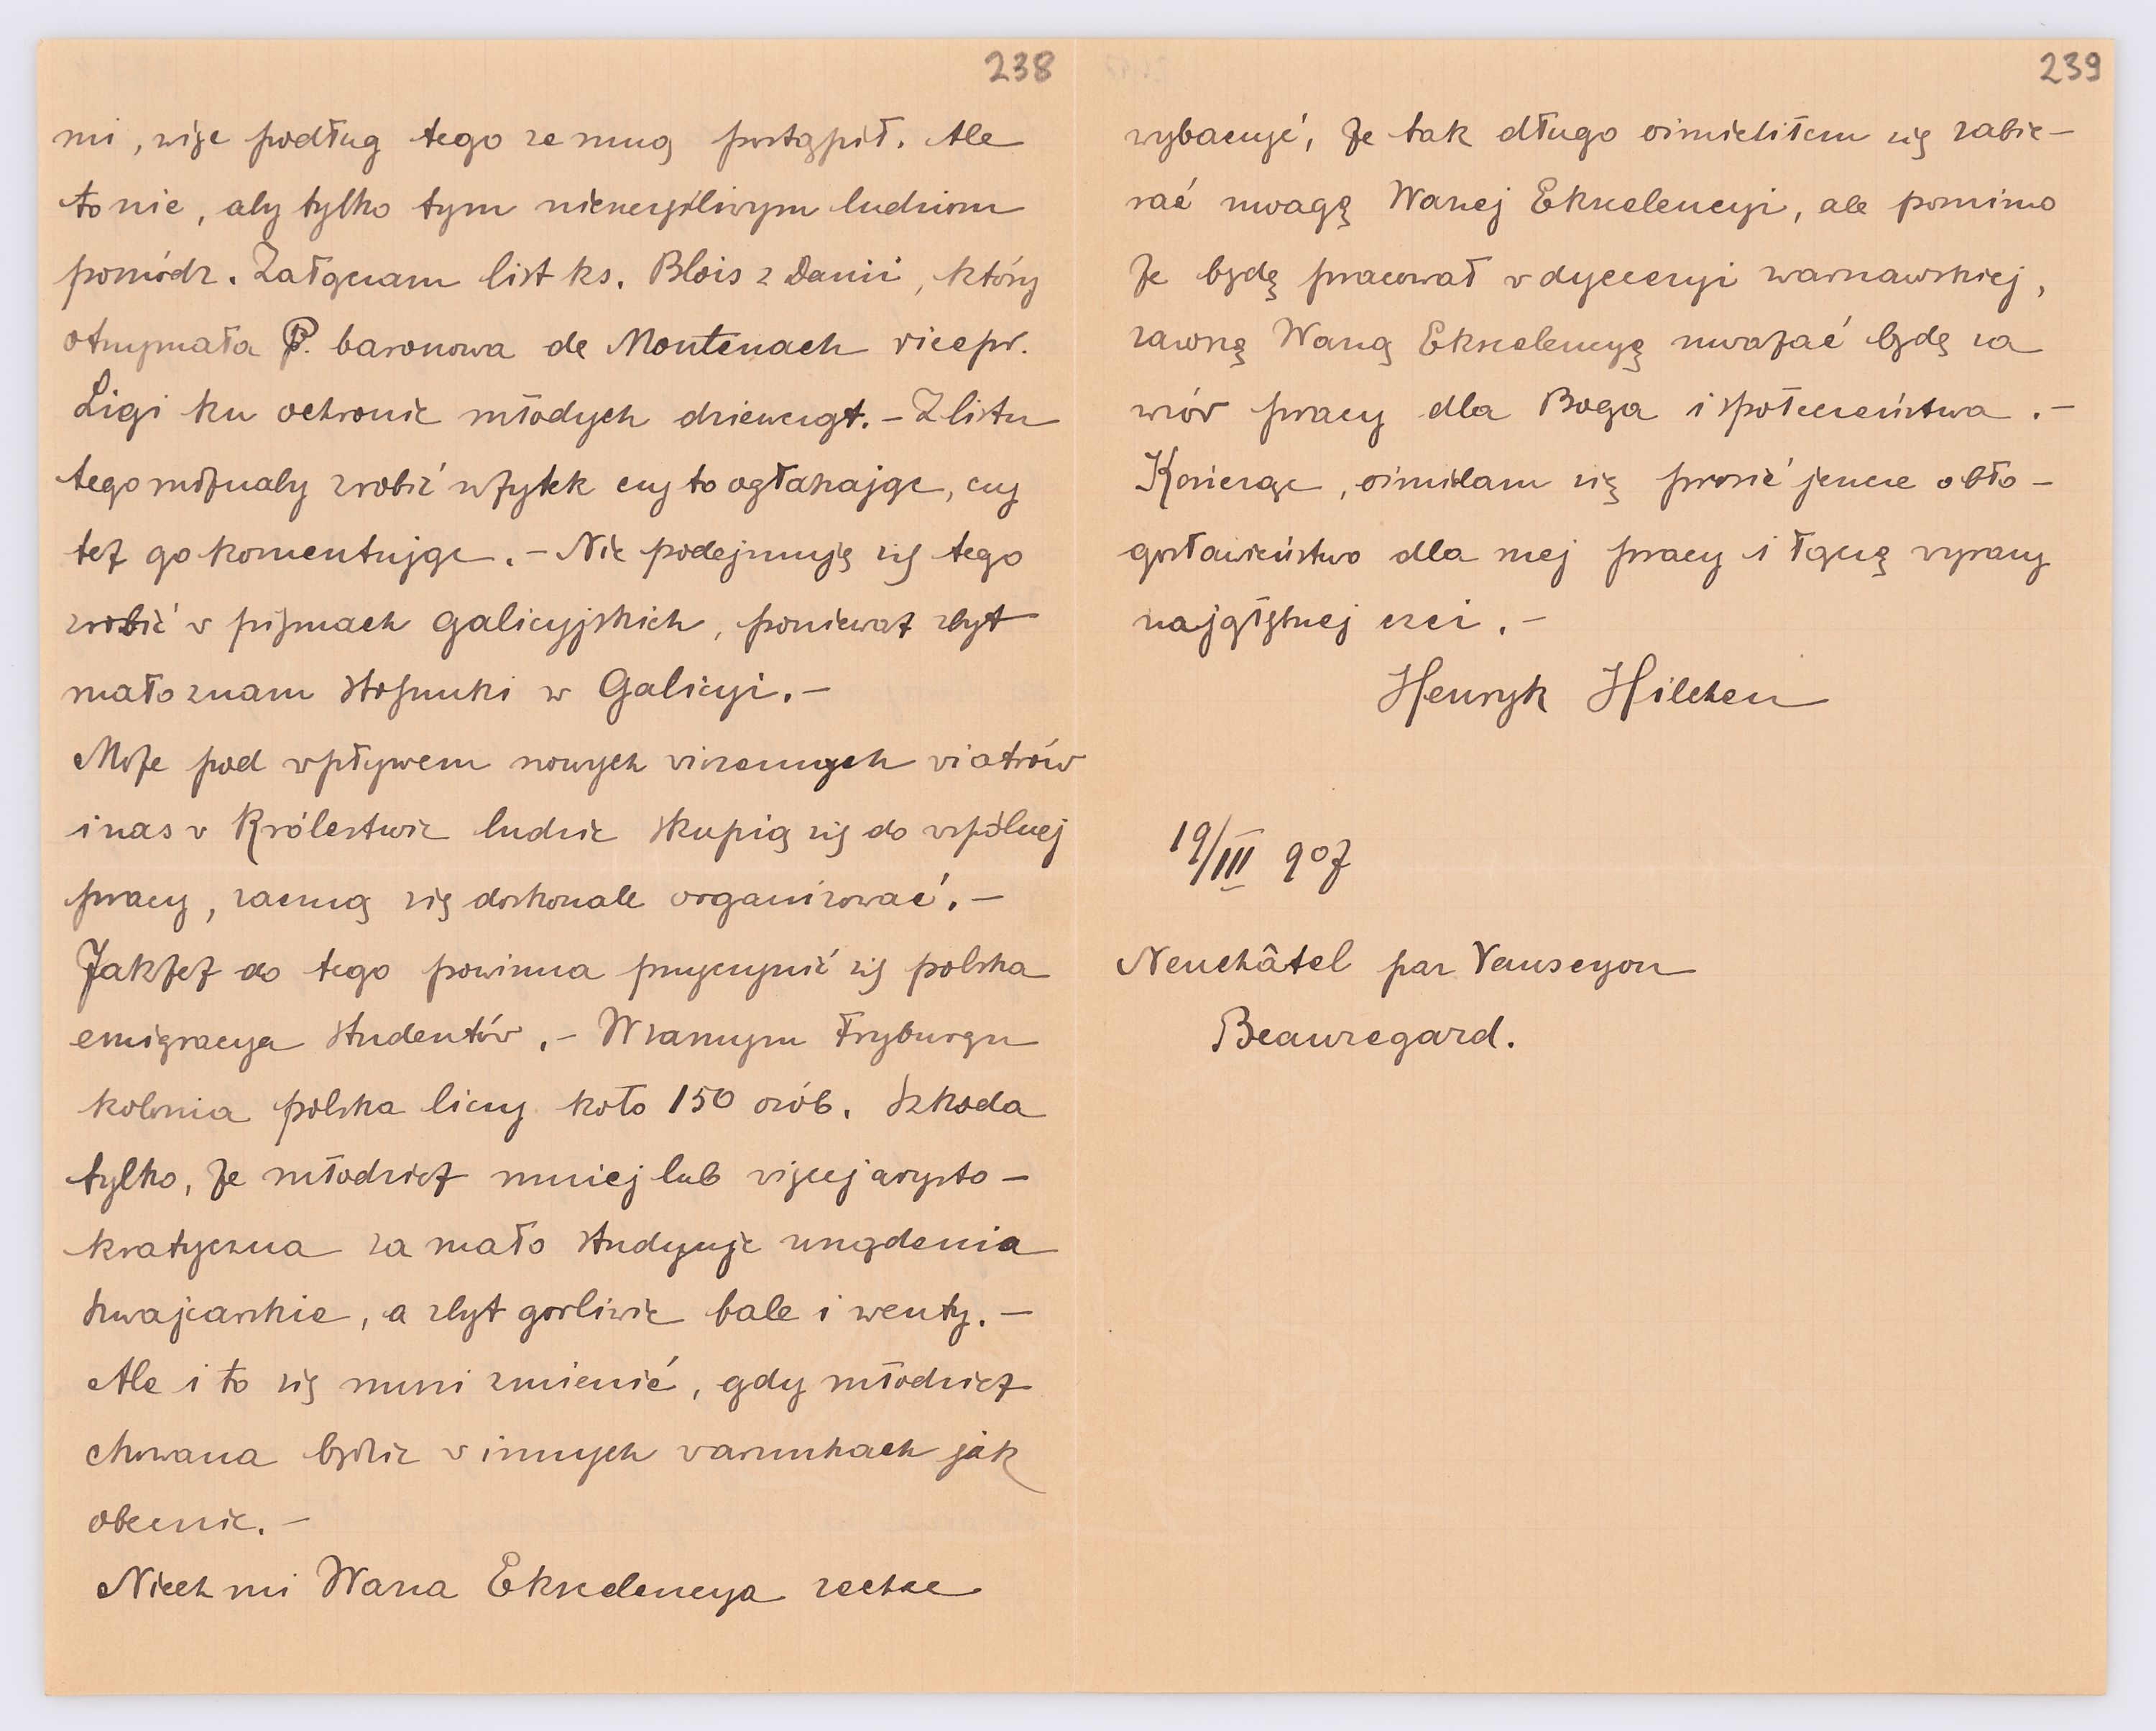 238
mi, więc podług tego ze mną postąpił. Ale
to nie, aby tylko tym nieszczęśliwym ludziom
pomódz. Załączam list ks. Blois z Danii, który
otrzymała P. baronowa de Montenach vicepr.
Ligi ku ochronie młodych dziewcząt. – Z listu
tego możnaby zrobić użytek czy to ogłaszając, czy
też go komentując. – Nie podejmuję się tego
zrobić w pismach galicyjskich, ponieważ zbyt
mało znam stosunki w Galicyi. –
Może pod wpływem nowych wiosennych wiatrów
i nas w Królestwie ludzie skupią się do wspólnej
pracy, zaczną się doskonale organizować. –
Jakżeż do tego powinna przyczynić się polska
emigracya studentów. – W samym Fryburgu
kolonia polska liczy koło 150 osób. Szkoda
tylko, że młodzież mniej lub więcej arysto–
kratyczna za mało studyuje urządzenia
szwajcarskie, a zbyt gorliwie bale i wenty. –
Ale i to się musi zmienić, gdy młodzież
chowana będzie w innych warunkach jak
obecnie. –
Niech mi Wasza Ekscelencya zechce
239
wybaczyć, że tak długo ośmieliłem się zabie–
rać uwagę Waszej Ekscelencyi, ale pomimo
że będę pracował w dyecezyi warszawskiej,
zawszę Waszą Ekscelencyę uważać będę za
wzór pracy dla Boga i społeczeństwa. –
Kończąc, ośmielam się prosić jeszcze o bło–
gosławieństwo dla mej pracy i łączę wyrazy
najgłębszej czci. –
Henryk Hilchen
19/III 907
Neuchâtel par Vauseyon
Beauregard.